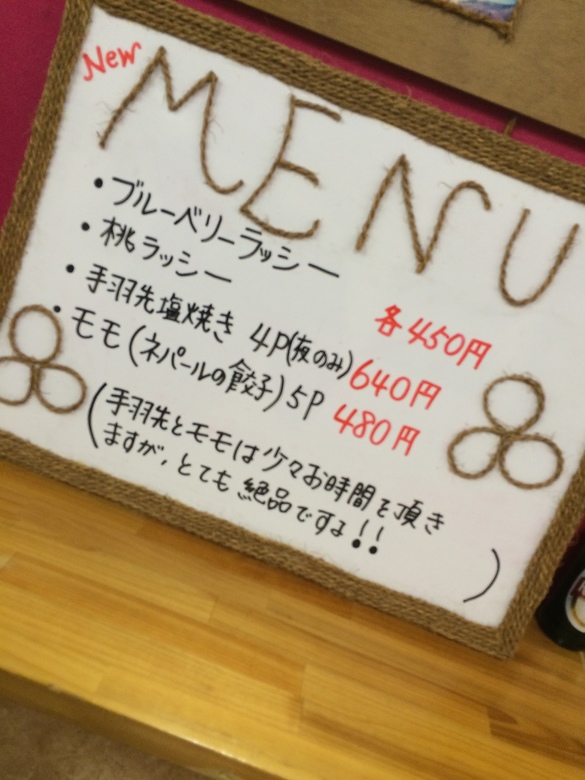 New
MENU
・ブルーベリーラッシー
・桃ラッシー 各450円
・手羽先塩焼き 4P(夜のみ)640円
・モモ(ネパールの餃子)5P 480円
(手羽先とモモは少々お時間を頂き
ますが、とても絶品ですよ!!)